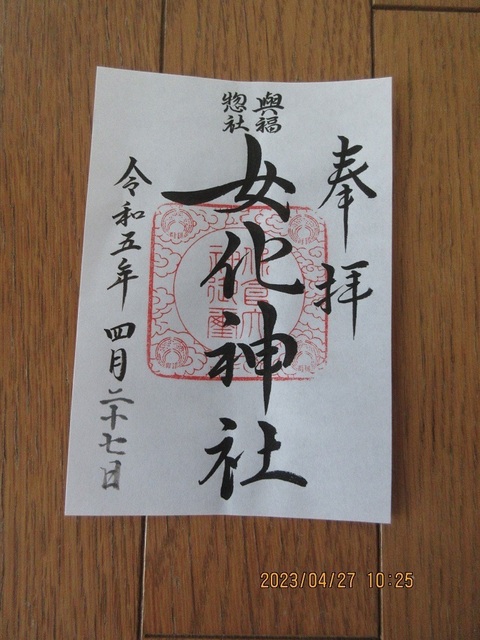 奉拝
興福
惣社
女化神社
令和五年 四月二十七日
2023/04/27 10:25